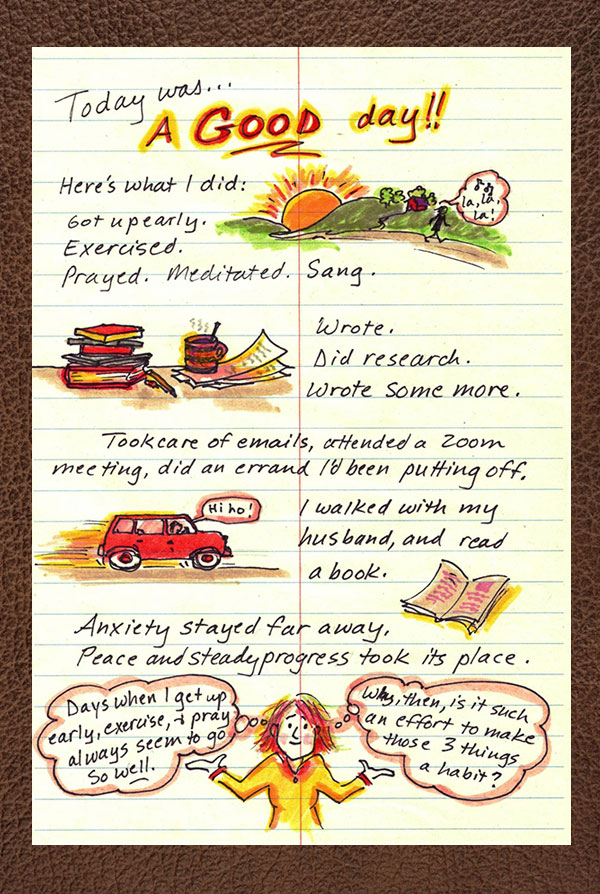 Today was...
A GOOD day!!
Here's what I did:
Got up early.
Exercised.
Prayed. Meditated. Sang.
la, la,
la!
Wrote.
Did research.
Wrote some more.
Took care of emails, attended a zoom
meeting, did an errand I'd been putting off.
Hi ho!
I walked with my
husband, and read
a book.
Anxiety stayed far away.
Peace and steady progress took its place.
Days when I get up
early, exercise, + pray
always seem to go
so well.
Why, then, is it such
an effort to make
those 3 things
a habit?